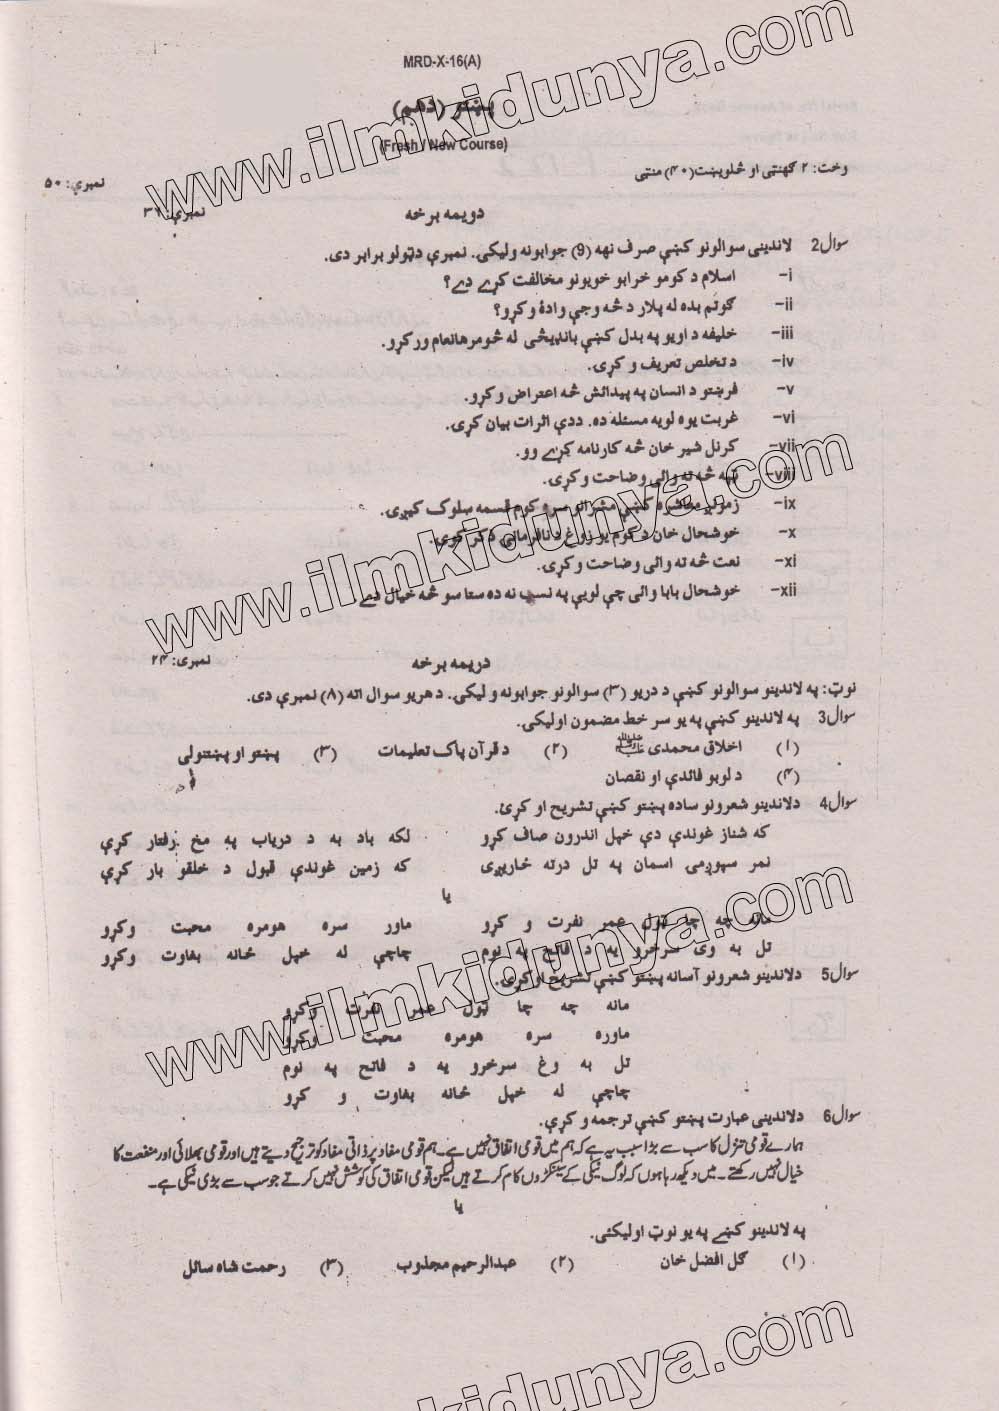 MRD-X-16(A)
پښتو (دهم)
(Fresh / New Course)
وخت: ۲ گهنټی او څلویښت(۴۰) منټی
نمبرې: ۵۰
دویمه برخه
نمبرې:
سوال2 لاندینی سوالونو کښې صرف نهه (9) جوابونه ولیکی. نمبرې دټولو برابر دی.
i- اسلام د کومو خرابو خویونو مخالفت کړے دے؟
ii- گوتم بده له پلار د څه وجې وادۀ وکړو؟
iii- خلیفه د اویو په بدل کښې بانډیڅی له څومرهانعام ورکړو.
iv- د تخلص تعریف و کړی.
v- فرښتو د انسان په پیدائش څه اعتراض وکړو.
vi- غربت یوه لویه مسئله ده. ددې اثرات بیان کړی.
vii- کرنل شیر خان څه کارنامه کړے وو.
viii- ټپه څه ته وائی وضاحت وکړی.
ix- زمونږ معاشره کښې مشرانو سره کوم قسمه سلوک کیږی.
x- خوشحال خان د کوم یو زوئ د نافرمانۍ ذکر کوی.
xi- نعت څه ته وائی وضاحت وکړی.
xii- خوشحال بابا وائی چې لویې په نسب نه ده ستا سو څه خیال دے
دریمه برخه
نمبری: ۲۴
نوټ: په لاندینو سوالونو کښې د دریو (۳) سوالونو جوابونه ولیکی. د هریو سوال اته (۸) نمبرې دی.
سوال3 په لاندینو کښې په یو سر خط مضمون اولیکی.
(۱) اخلاق محمدی ﷺ (۲) د قرآن پاک تعلیمات (۳) پښتو او پښتنولی
(۴) د لوبو فائدې او نقصان
سوال4 دلاندینو شعرونو ساده پښتو کښې تشریح او کړئ.
که شناز غوندې دې خپل اندرون صاف کړو لکه باد به د دریاب په مخ رفتار کړې
نمر سپوږمۍ اسمان په تل درته ځاریږی که زمین غوندې قبول د خلقو بار کړې
یا
مانه چه چا ټول عمر نفرت و کړو ماور سره هومره محبت وکړو
تل به وی سرخرو یه د فاتح په نوم چاچې له خپل ځانه بغاوت وکړو
سوال5 دلاندینو شعرونو آسانه پښتو کښې تشریح اوکړی.
مانه چه چا ټول عمر نفرت وکړو
ماوره سره هومره محبت وکړو
تل به وغ سرخرو یه د فاتح په نوم
چاچې له خپل ځانه بغاوت و کړو
سوال6 دلاندینی عبارت پښتو کښې ترجمه و کړې.
ہمارے قومی تنزل کا سب سے بڑا سبب یہ ہے کہ ہم میں قومی اتفاق نہیں ہے۔ ہم قومی مفاد پر ذاتی مفاد کو ترجیح دیتے ہیں اور قومی بھلائی اور منفعت کا
خیال نہیں رکھتے۔ میں دیکھ رہا ہوں کہ لوگ نیکی کے سینکڑوں کام کرتے ہیں لیکن قومی اتفاق کی کوشش نہیں کرتے جو سب سے بڑی نیکی ہے۔
یا
په لاندینو کښے په یو نوټ اولیکئی.
(۱) گل افضل خان (۲) عبدالرحیم مجذوب (۳) رحمت شاه سائل
www.ilmkidunya.com
www.ilmkidunya.com
www.ilmkidunya.com
kidunya.com